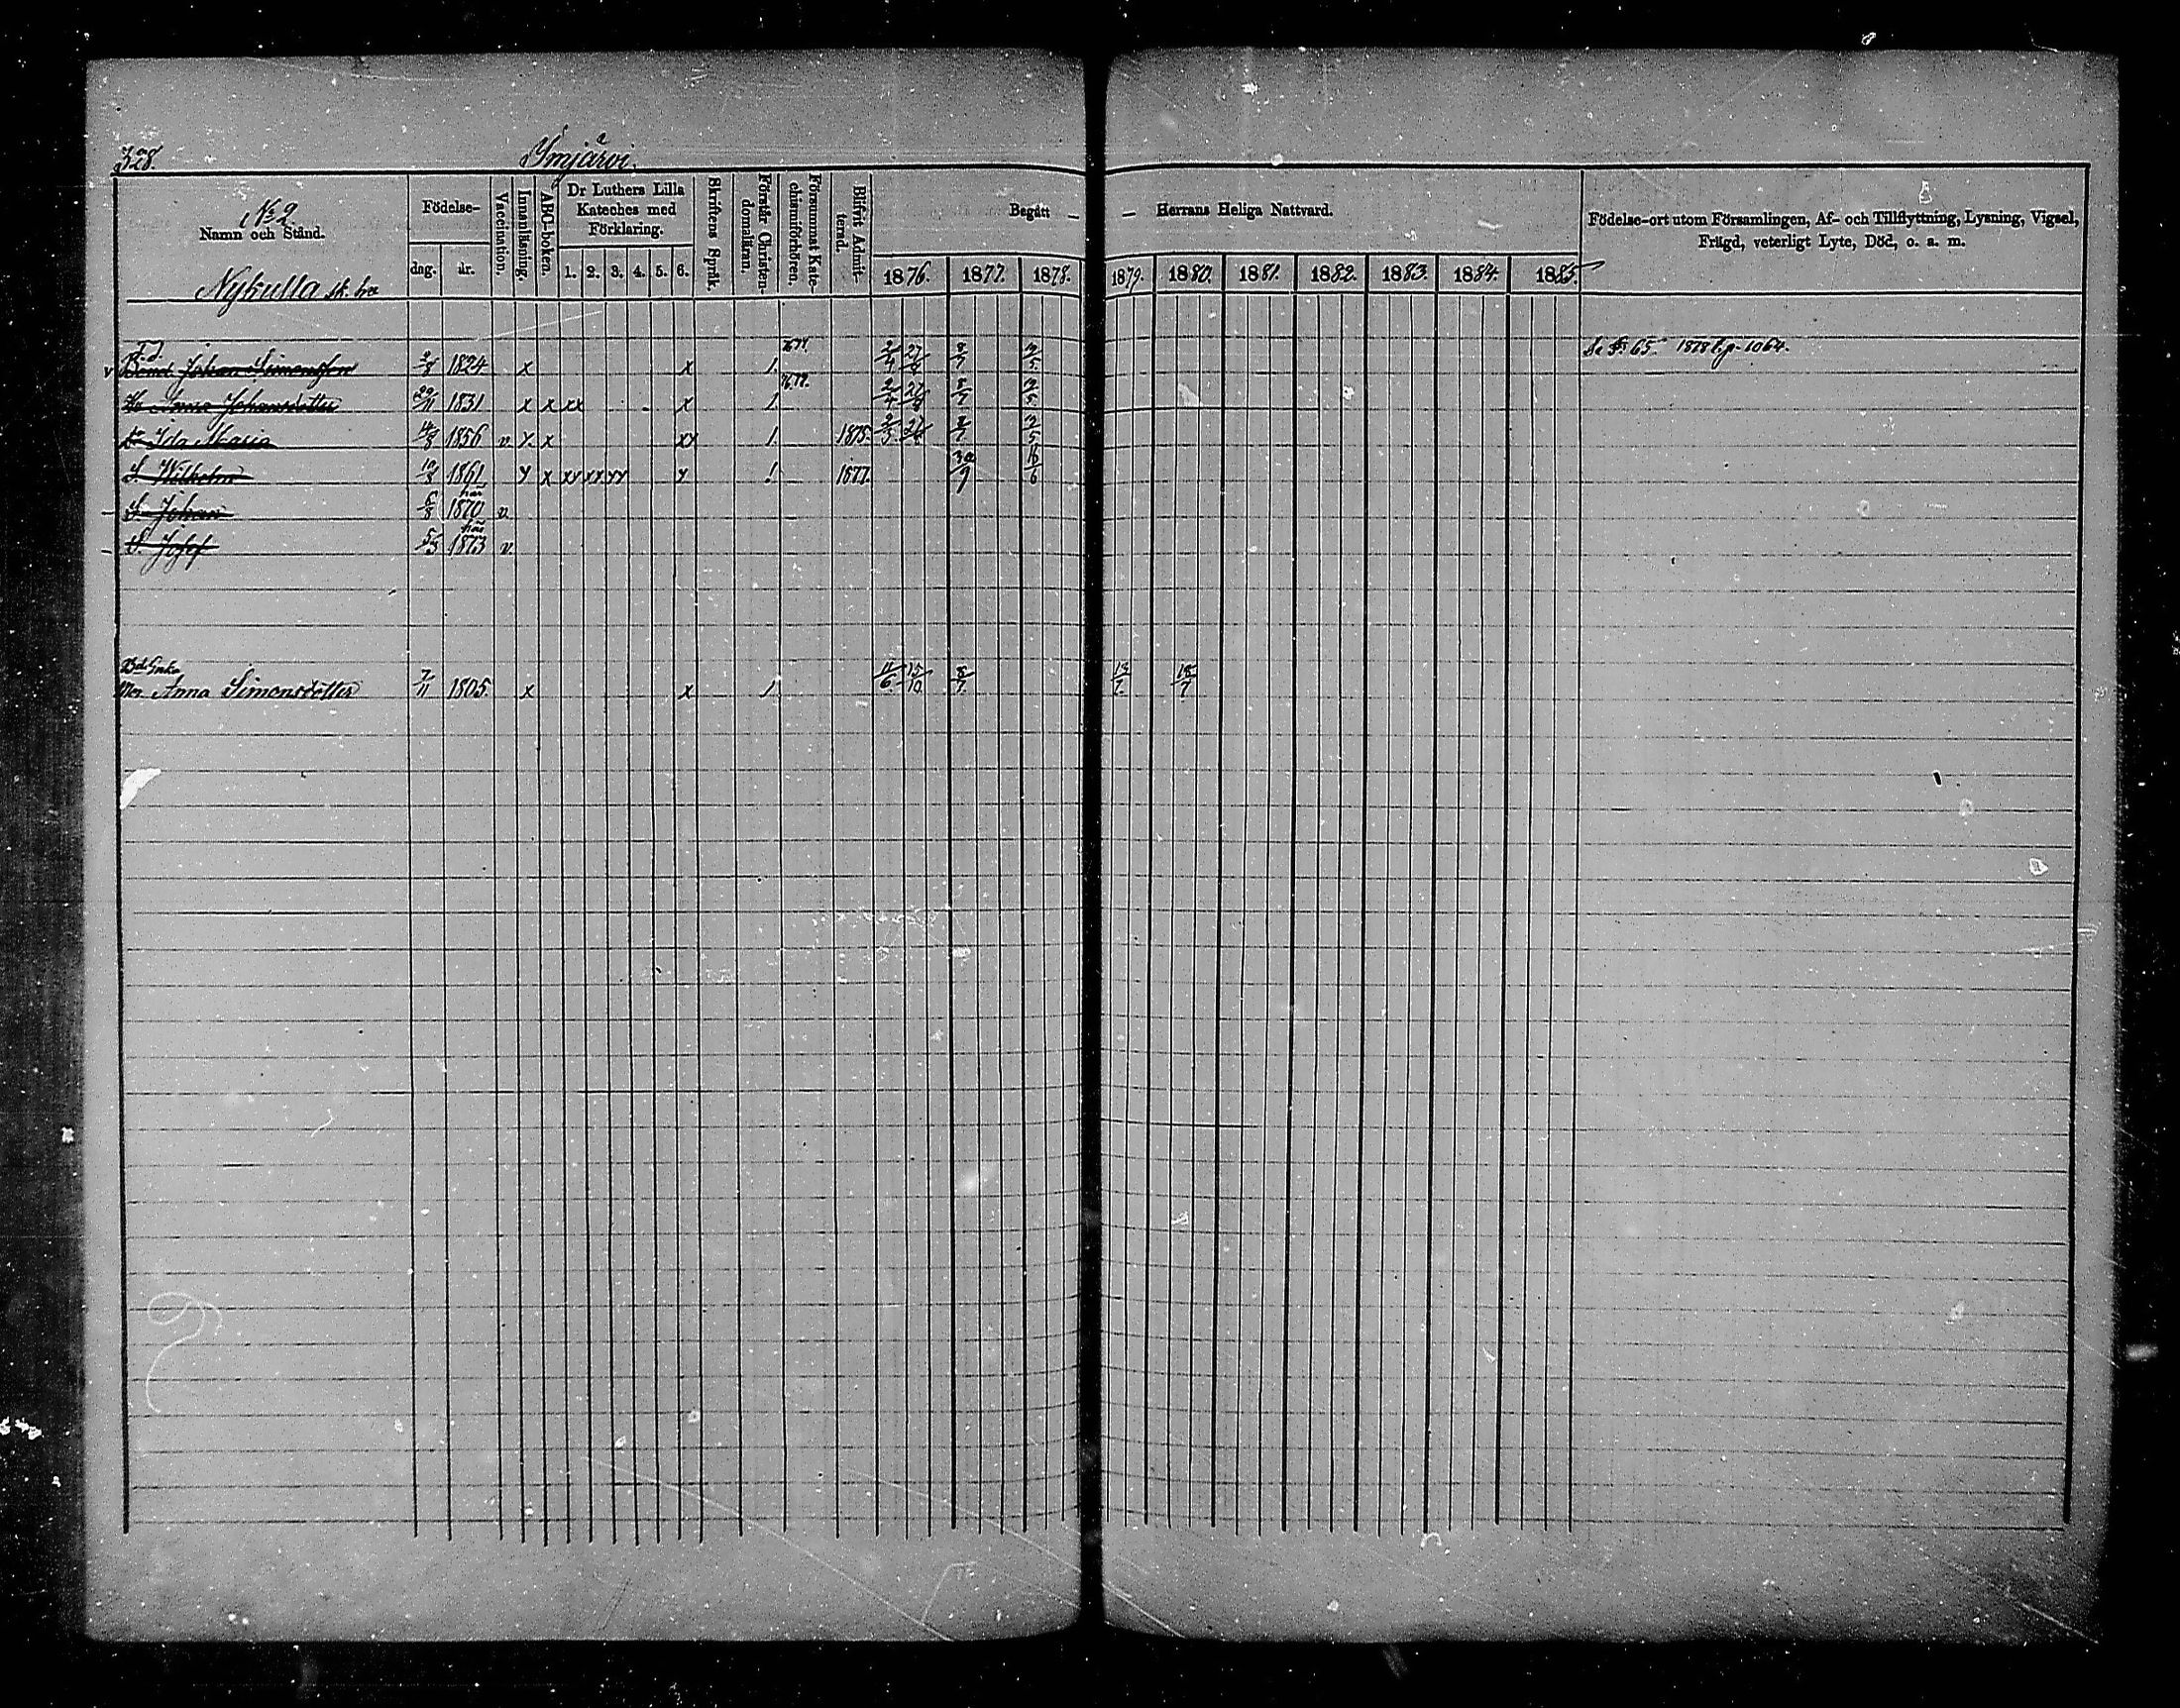 328. Ymjärvi.
No 2.
Namn och Stånd.
Nykulla sk. hn
Födelse-
dag. år.
Vaccination.
Innanläsning.
ABC-boken.
Dr Luthers Lilla
Kateches med
Förklaring.
1. 2. 3. 4. 5. 6.
Skriftens Språk.
Förstår Christen-
domsläran.
Försummat Kate-
chismiförhören.
Blifvit Admit-
terad.
Begått — — Herrans Heliga Nattvard.
1876. 1877. 1878. 1879. 1880. 1881. 1882. 1883. 1884. 1885.
Födelse-ort utom Församlingen, Af- och Tillflyttning, Lysning, Vigsel,
Frägd, veterligt Lyte, Död, o. a. m.
f.d.
v Bond. Johan Simonsson 1824 x x 1. 8/7 65. 1878 l. p. 1064.
H. Anna Johansdotter 29/11 1831 x x xx x 1. 8/7
Dr Ida Maria 1856 v x x xx 1 1875. 8/7
S. Wilhelm 1861 y x xx xx yy y 1 1877. 30/9 16/6
här
S. Johan 6/8 1870 v
här
S. Josef 5/3 1873 v
Bd Enka
Mor. Anna Simonsdotter 7/11 1805 x x 1 15/10 8/7 13/7 18/7